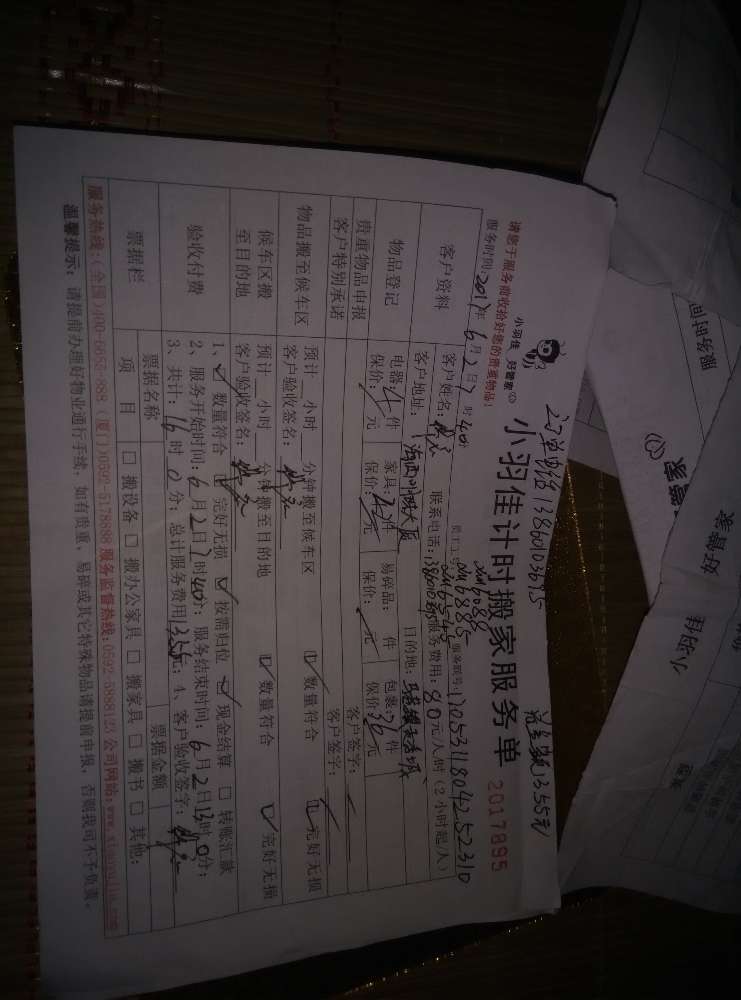 订单电话13860103695 总金额1355元
小羽佳 好管家
小羽佳计时搬家服务单
2017895
请您于服务前收拾好您的贵重物品!
服务时间:2017年6月2日7时40分
服务账号:1705311804252310
客户资料
客户姓名: 联系电话: 服务费用:80元/人/时(2小时起/人)
客户地址: 目的地:
物品登记
电器:4件 家具: 件 易碎品: 件 包裹:36件
保价: 元 保价: 元 保价: 元 保价: 元
贵重物品申报 客户签字:
客户特别承诺 客户签字:
物品搬至候车区
预计 小时 分钟搬至候车区 ☑数量符合 ☑完好无损
客户验收签名:
候车区搬至目的地
预计 小时 分钟搬至目的地 ☑数量符合 ☑完好无损
客户验收签名:
验收付费
1、☑数量符合 ☑完好无损 ☑按需归位 ☑现金结算 □转账汇款
2、服务开始时间:6月2日7时40分;服务结束时间:6月2日13时0分;
3、共计:16时0分;总计服务费用1355元;4、客户验收签字:
票据栏
票据名称 票据金额
项目 □搬设备 □搬办公家具 □搬家具 □搬书 □其他:
服务热线:(全国)400-6858-888 (厦门)0592-5178888 服务监督热线:0592-5888123 公司网站:www.xiaoyujia.com
温馨提示:请提前办理好物业通行手续,如有贵重、易碎或其它特殊物品请提前申报,否则我司不予负责。
服务时间
管家
好管家
小羽佳